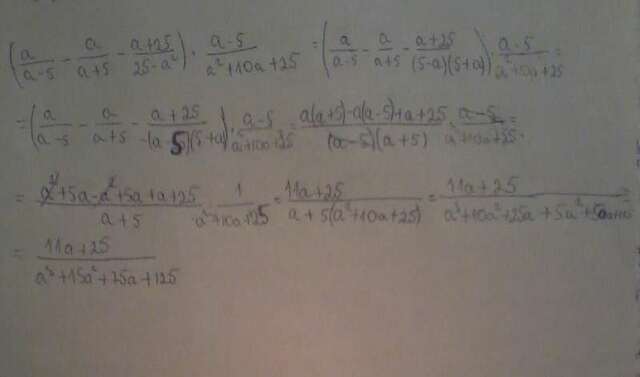 (a/(a-5) - a/(a+5) - (a+25)/(25-a²)) · (a-5)/(a²+10a+25) = (a/(a-5) - a/(a+5) - (a+25)/((5-a)(5+a))) · (a-5)/(a²+10a+25) =
= (a/(a-5) - a/(a+5) - (a+25)/(-(a-5)(5+a))) · (a-5)/(a²+10a+25) = (a(a+5)-a(a-5)+a+25)/((a-5)(a+5)) · (a-5)/(a²+10a+25) =
= (a²+5a-a²+5a+a+25)/(a+5) · 1/(a²+10a+25) = (11a+25)/(a+5(a²+10a+25)) = (11a+25)/(a³+10a²+25a+5a²+
= (11a+25)/(a³+15a²+75a+125)